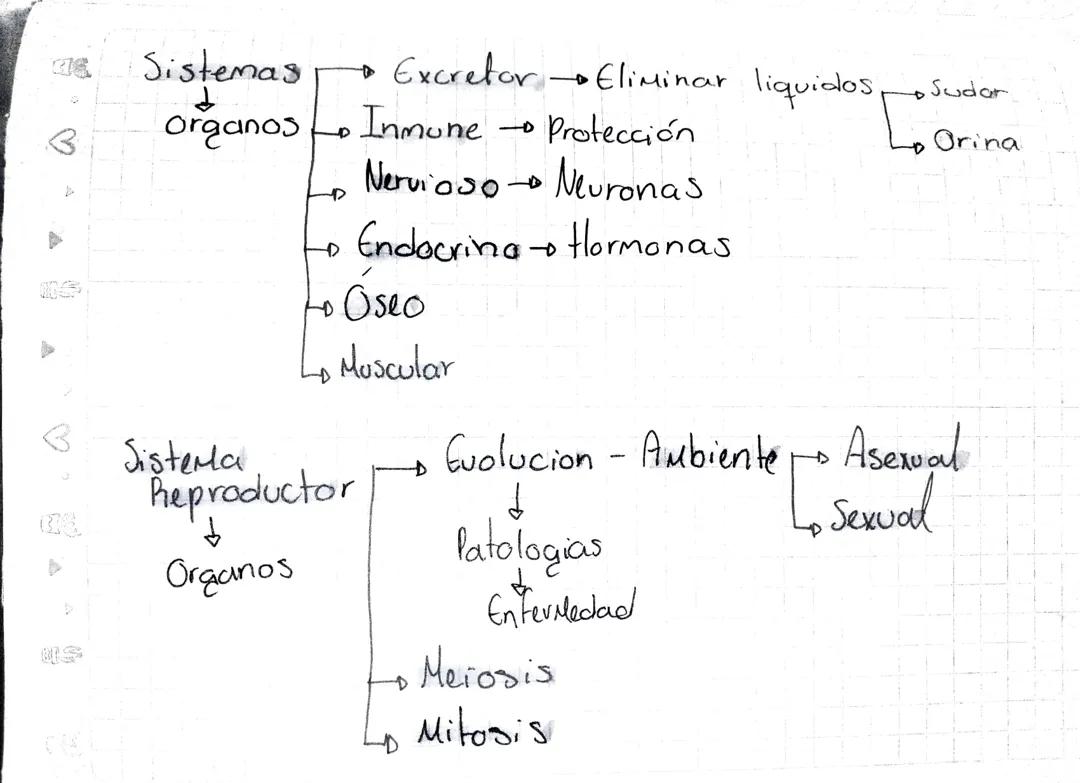 Sistemas → Excretor → Eliminar liquidos → Sudar
↓
organos → Inmune → Protección → Orina
→ Nervioso → Neuronas
→ Endocrino → Hormonas
→ Óseo
→ Muscular
Sistema → Evolucion - Ambiente → Asexual
Reproductor ↓ → Sexual
↓ Patologias
Organos ↓
Enfermedad
→ Meiosis
→ Mitosis